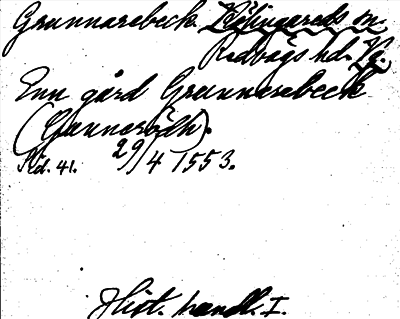 Grunnarebeck Kölingareds sn.
Redvägs hd. Vg.
Enn gård Grunnarebeck
(Gunneröth).
Sid. 41. 29/4 1553.
Hist. handl. I.